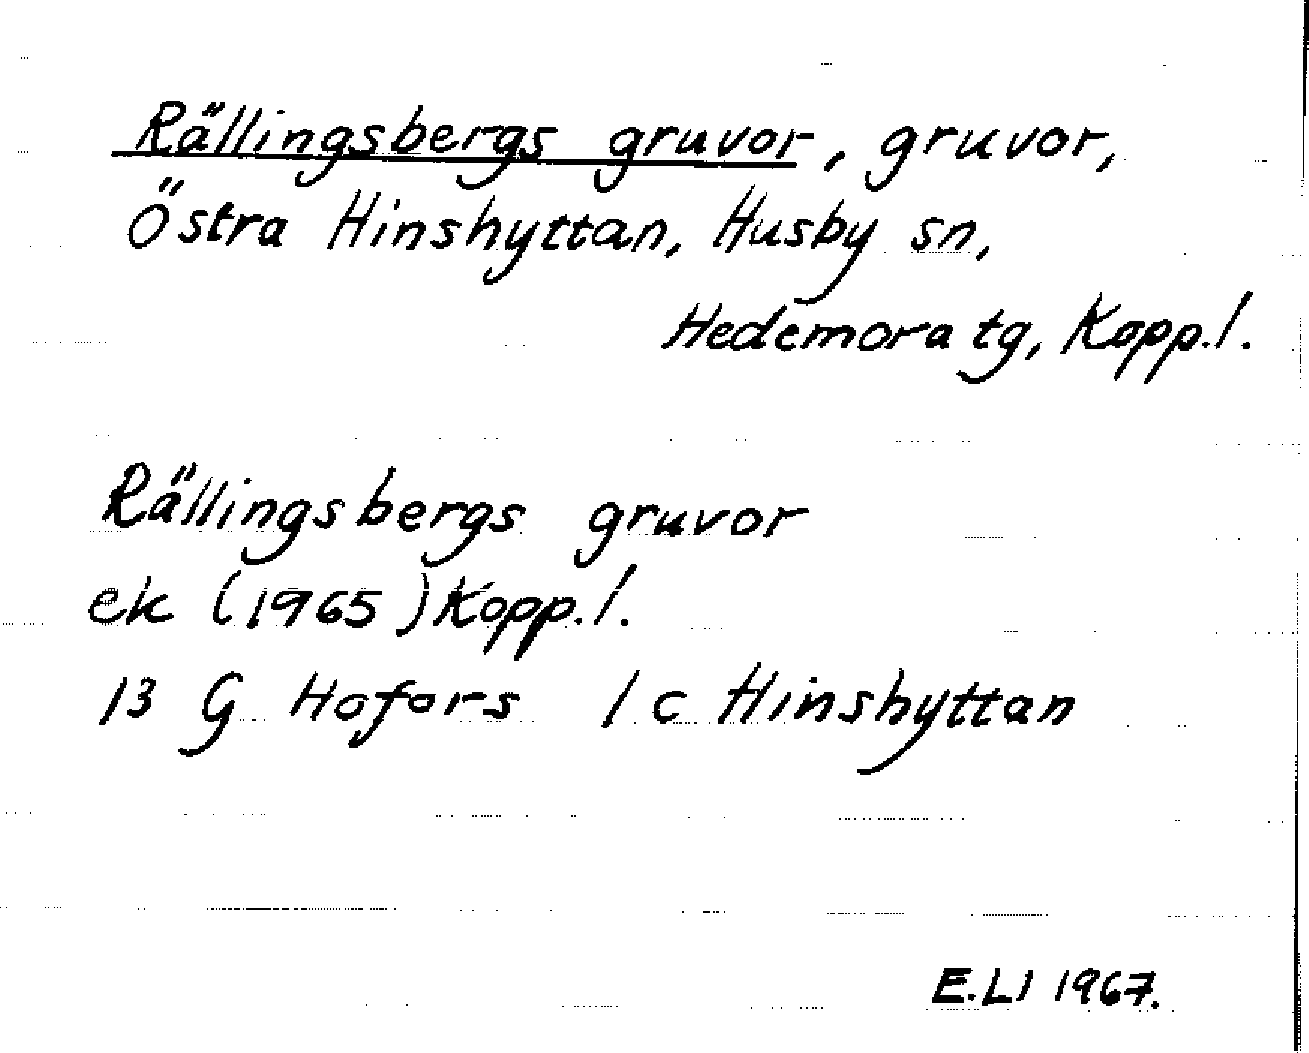 Rällingsbergs gruvor, gruvor,
Östra Hinshyttan, Husby sn,
Hedemora tg, Kopp.l.
Rällingsbergs gruvor
ek (1965) Kopp.l.
13 G Hofors 1 c Hinshyttan
E.LJ 1967.